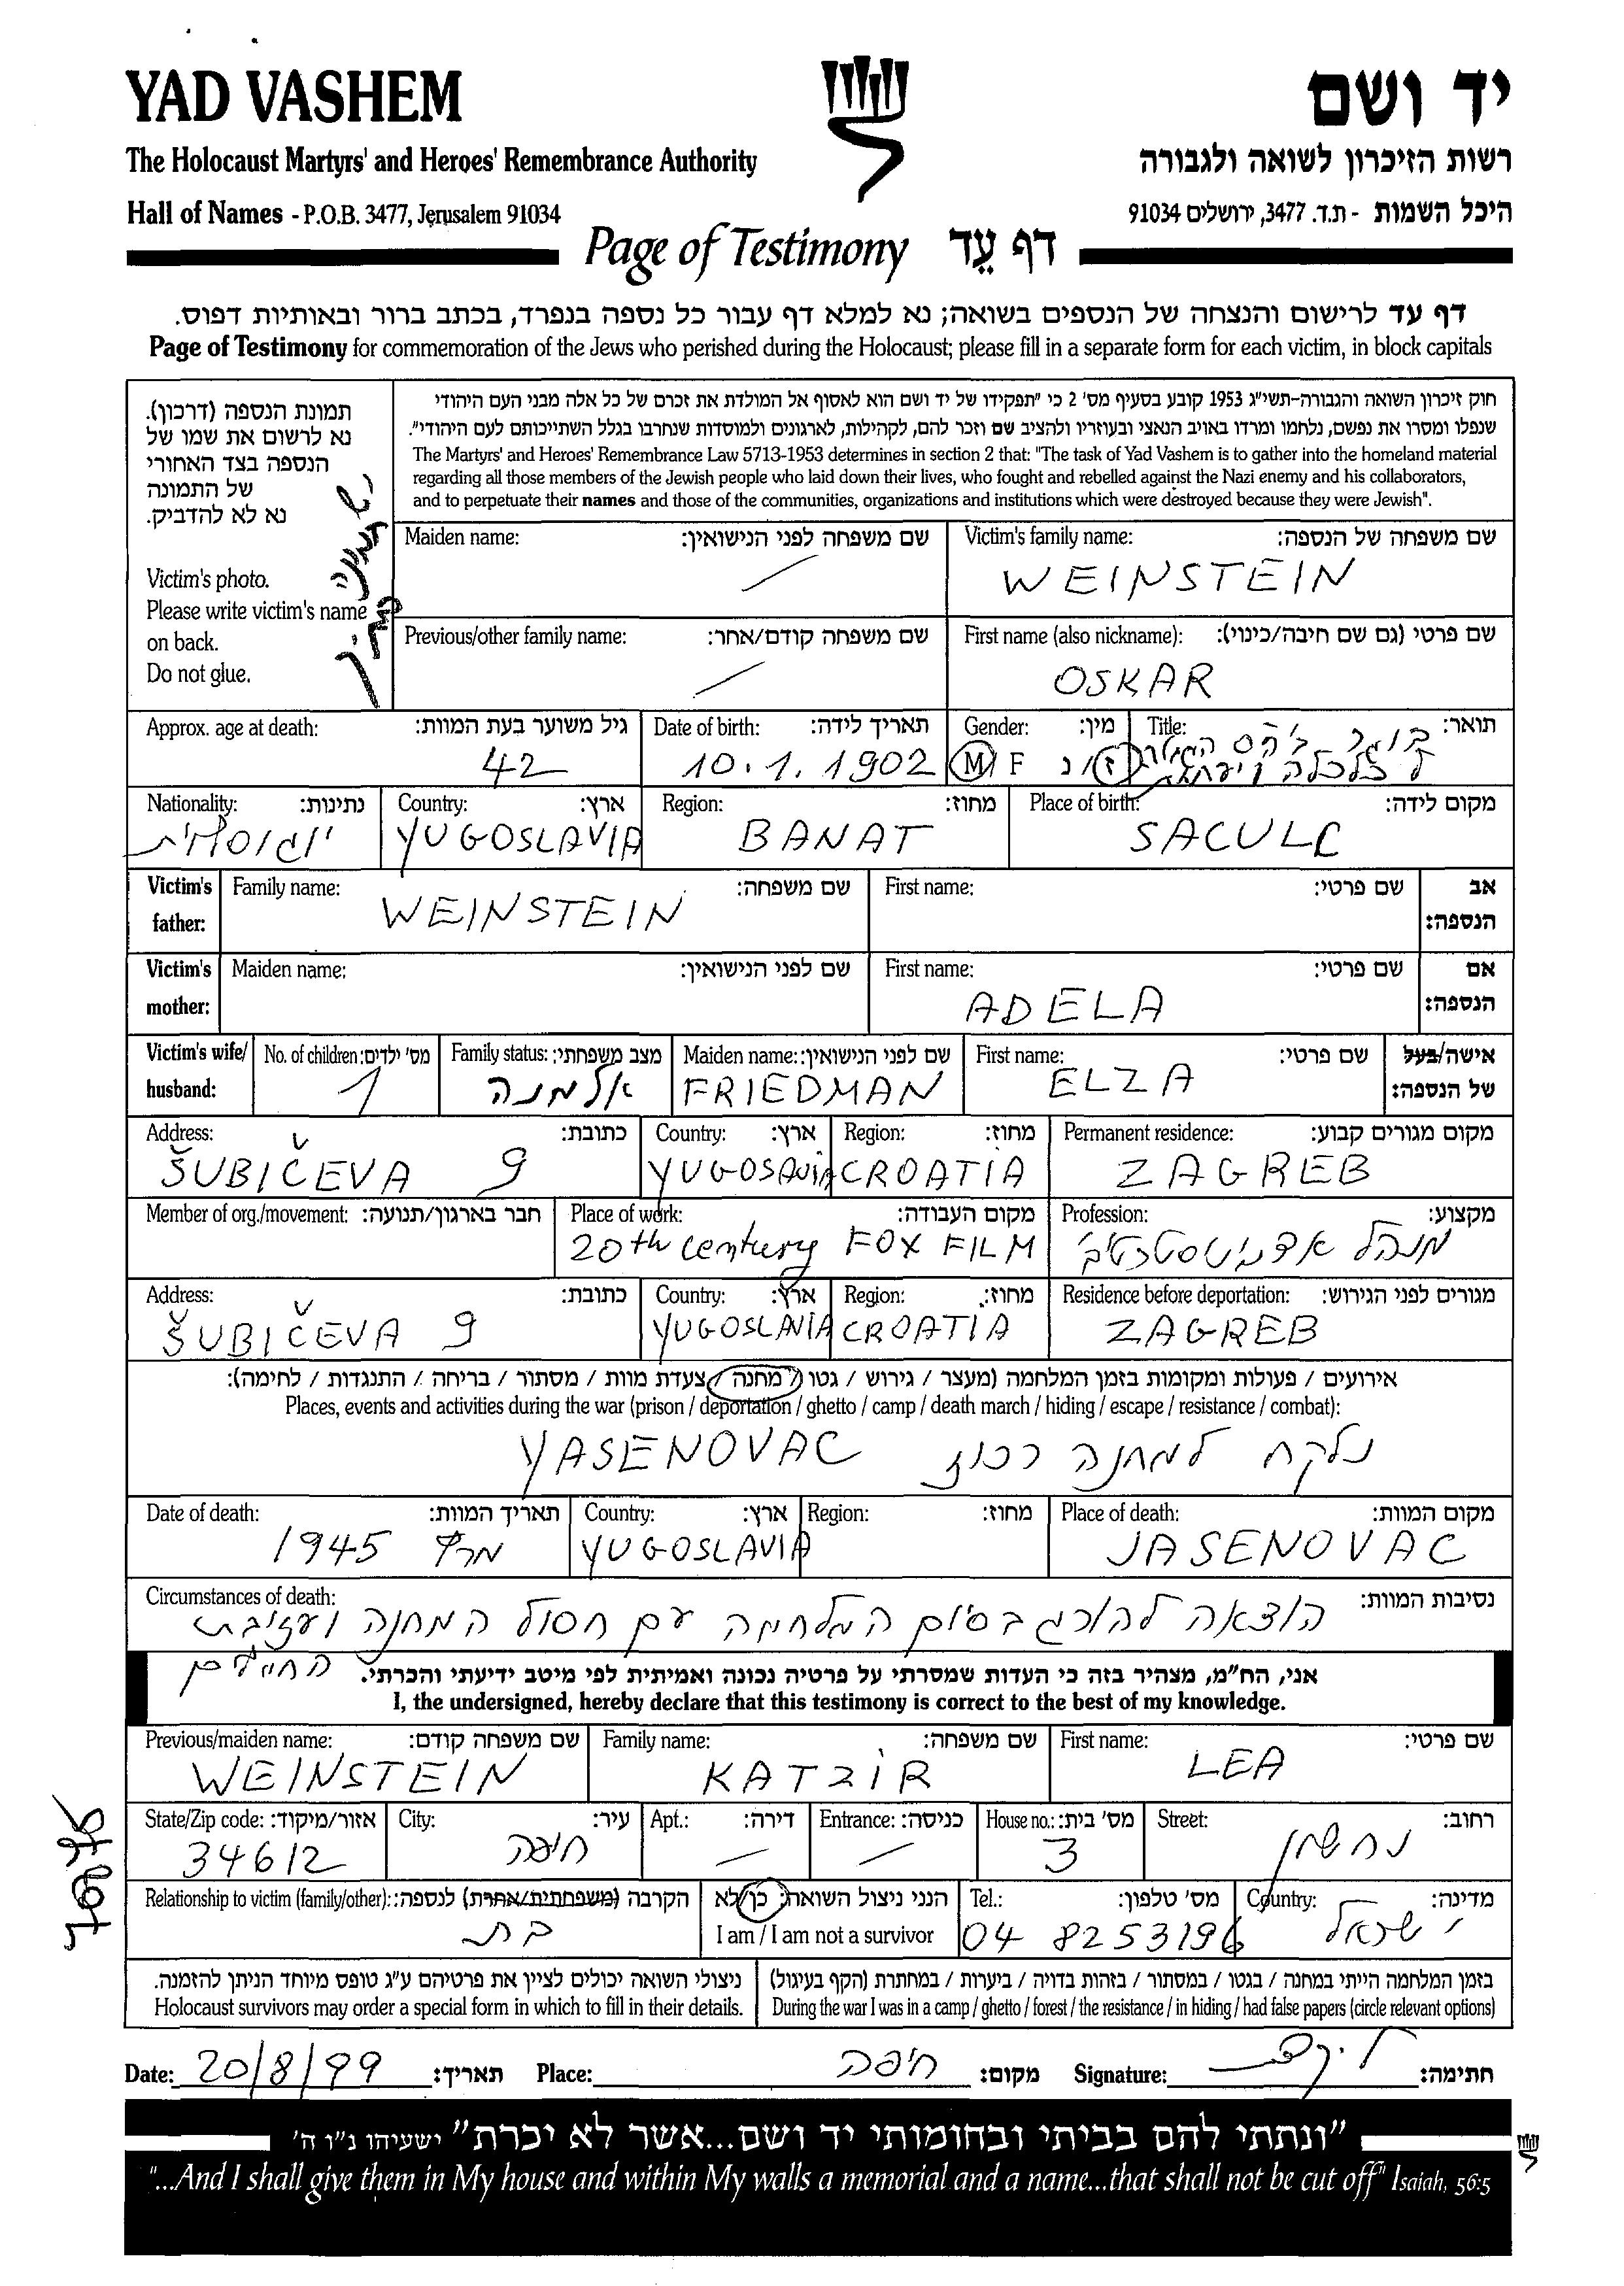 YAD VASHEM
יד ושם
The Holocaust Martyrs' and Heroes' Remembrance Authority
רשות הזיכרון לשואה ולגבורה
Hall of Names - P.O.B. 3477, Jerusalem 91034
היכל השמות - ת.ד. 3477, ירושלים 91034
Page of Testimony דף עֵד
דף עד לרישום והנצחה של הנספים בשואה; נא למלא דף עבור כל נספה בנפרד, בכתב ברור ובאותיות דפוס.
Page of Testimony for commemoration of the Jews who perished during the Holocaust; please fill in a separate form for each victim, in block capitals
תמונת הנספה (דרכון).
נא לרשום את שמו של
הנספה בצד האחורי
של התמונה
נא לא להדביק.
Victim's photo.
Please write victim's name
on back.
Do not glue.
חוק זיכרון השואה והגבורה-תשי"ג 1953 קובע בסעיף מס' 2 כי "תפקידו של יד ושם הוא לאסוף אל המולדת את זכרם של כל אלה מבני העם היהודי
שנפלו ומסרו את נפשם, נלחמו ומרדו באויב הנאצי ובעוזריו ולהציב שם וזכר להם, לקהילות, לארגונים ולמוסדות שנחרבו בגלל השתייכותם לעם היהודי".
The Martyrs' and Heroes' Remembrance Law 5713-1953 determines in section 2 that: "The task of Yad Vashem is to gather into the homeland material
regarding all those members of the Jewish people who laid down their lives, who fought and rebelled against the Nazi enemy and his collaborators,
and to perpetuate their names and those of the communities, organizations and institutions which were destroyed because they were Jewish".
Maiden name: שם משפחה לפני הנישואין:
/
Victim's family name: שם משפחה של הנספה:
WEINSTEIN
Previous/other family name: שם משפחה קודם/אחר:
/
First name (also nickname): שם פרטי (גם שם חיבה/כינוי):
OSKAR
Approx. age at death: גיל משוער בעת המוות:
42
Date of birth: תאריך לידה:
10.1.1902
Gender: מין:
M/F ז/נ
Title: תואר:
בוגר
Nationality: נתינות:
יוגוסלבית
Country: ארץ:
YUGOSLAVIA
Region: מחוז:
BANAT
Place of birth: מקום לידה:
Victim's father: Family name: שם משפחה:
WEINSTEIN
First name: שם פרטי:
אב הנספה:
Victim's mother: Maiden name: שם לפני הנישואין:
First name: שם פרטי:
ADELA
אם הנספה:
Victim's wife/husband: No. of children: מס' ילדים:
1
Family status: מצב משפחתי:
אלמנה
Maiden name: שם לפני הנישואין:
FRIEDMAN
First name: שם פרטי:
ELZA
אישה/בעל של הנספה:
Address: כתובת:
ŠUBIČEVA 9
Country: ארץ:
YUGOSAVIA
Region: מחוז:
CROATIA
Permanent residence: מקום מגורים קבוע:
ZAGREB
Member of org./movement: חבר בארגון/תנועה:
Place of work: מקום העבודה:
20th century FOX FILM
Profession: מקצוע:
מנהל אדמיניסטרטיבי
Address: כתובת:
ŠUBIČEVA 9
Country: ארץ:
YUGOSLAVIA
Region: מחוז:
CROATIA
Residence before deportation: מגורים לפני הגירוש:
ZAGREB
אירועים / פעולות ומקומות בזמן המלחמה (מעצר / גירוש / גטו / מחנה / צעדת מוות / מסתור / בריחה / התנגדות / לחימה):
Places, events and activities during the war (prison / deportation / ghetto / camp / death march / hiding / escape / resistance / combat):
נלקח למחנה רכוז YASENOVAC
Date of death: תאריך המוות:
מרץ 1945
Country: ארץ:
YUGOSLAVIA
Region: מחוז:
Place of death: מקום המוות:
JASENOVAC
Circumstances of death: נסיבות המוות:
הוצאה להורג בסיום המלחמה עם חסול המחנה ועזיבת
אני, הח"מ, מצהיר בזה כי העדות שמסרתי על פרטיה נכונה ואמיתית לפי מיטב ידיעתי והכרתי.
I, the undersigned, hereby declare that this testimony is correct to the best of my knowledge.
Previous/maiden name: שם משפחה קודם:
WEINSTEIN
Family name: שם משפחה:
KATZIR
First name: שם פרטי:
LEA
State/Zip code: אזור/מיקוד:
34612
City: עיר:
חיפה
Apt.: דירה:
/
Entrance: כניסה:
/
House no.: מס' בית:
3
Street: רחוב:
נחשון
Relationship to victim (family/other): הקרבה (משפחתית/אחרת) לנספה:
בת
הנני ניצול השואה: כן/לא
I am / I am not a survivor
Tel.: מס' טלפון:
04 8253196
Country: מדינה:
ישראל
ניצולי השואה יכולים לציין את פרטיהם ע"ג טופס מיוחד הניתן להזמנה.
Holocaust survivors may order a special form in which to fill in their details.
בזמן המלחמה הייתי במחנה / בגטו / במסתור / בזהות בדויה / ביערות / במחתרת (הקף בעיגול)
During the war I was in a camp / ghetto / forest / the resistance / in hiding / had false papers (circle relevant options)
Date: 20/8/99 תאריך: Place: חיפה מקום: Signature: חתימה:
"ונתתי להם בביתי ובחומותי יד ושם...אשר לא יכרת" ישעיהו נ"ו ה'
"...And I shall give them in My house and within My walls a memorial and a name...that shall not be cut off" Isaiah, 56:5